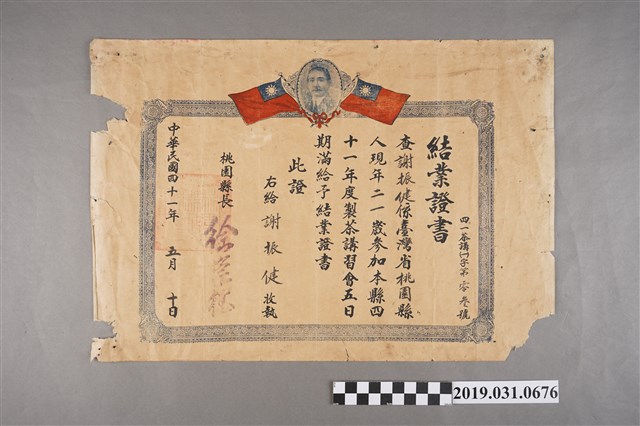 結業證書
四一茶講(一)字第零叁號
查謝振健係臺灣省桃園縣
人現年二一歲參加本縣四
十一年度製茶講習會五日
期滿給予結業證書
此證
右給謝振健收執
桃園縣長
徐崇德
中華民國四十一年五月十日
2019.031.0676